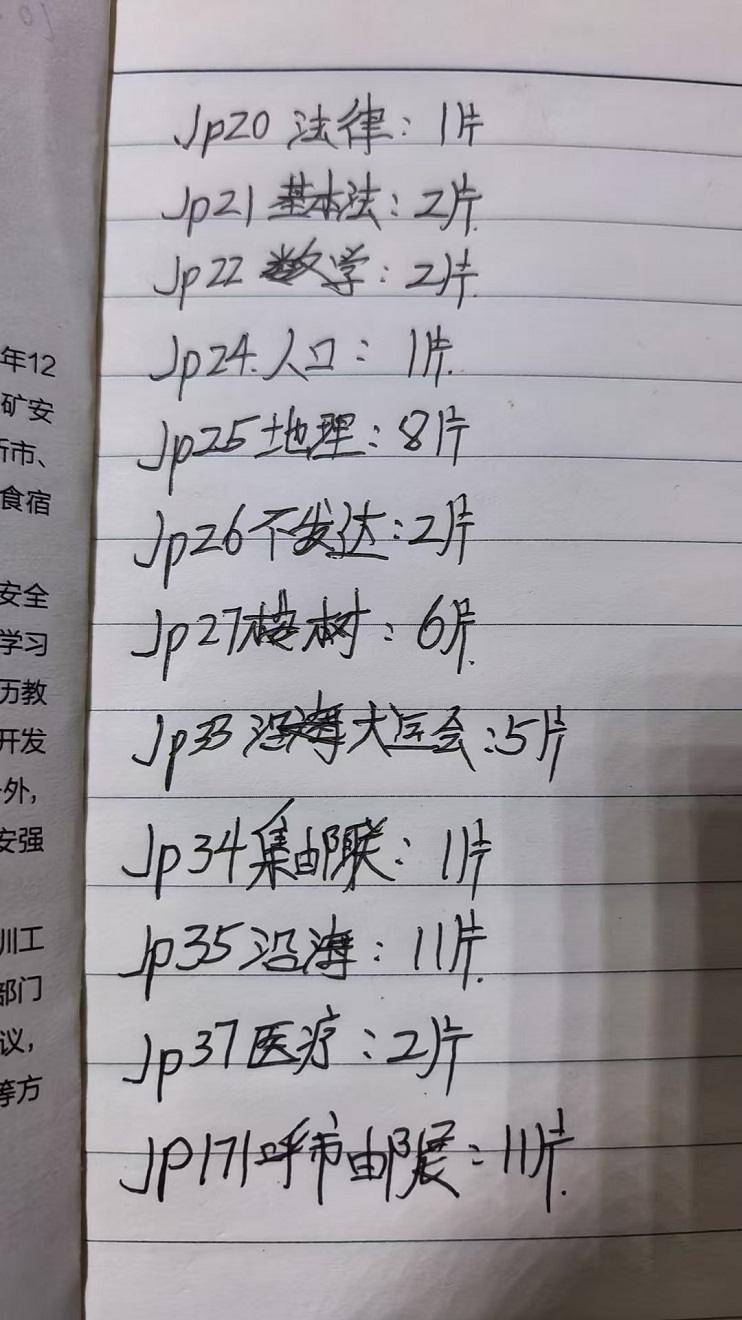 年12
矿安
行市、
食宿
安全
学习
历教
开发
外,
安强
川工
部门
议,
等方
Jp20 法律: 1片
Jp21 基本法: 2片.
Jp22 数学: 2片.
Jp24. 人口: 1片.
Jp25 地理: 8片
Jp26 不发达: 2片
Jp27 桉树: 6片.
Jp33 沿海大运会: 5片
Jp34 集邮联: 1片
Jp35 沿海: 11片.
Jp37 医疗: 2片
JP171 呼市邮展: 11片.